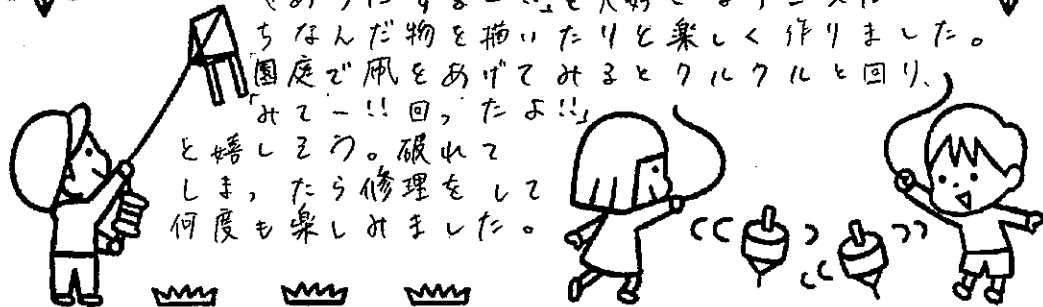 ちなんだ物を描いたりと楽しく作りました。
園庭で凧をあげてみるとクルクルと回り、
「みてー!!回ったよ!!」
と嬉しそう。破れて
しまったら修理をして
何度も楽しみました。